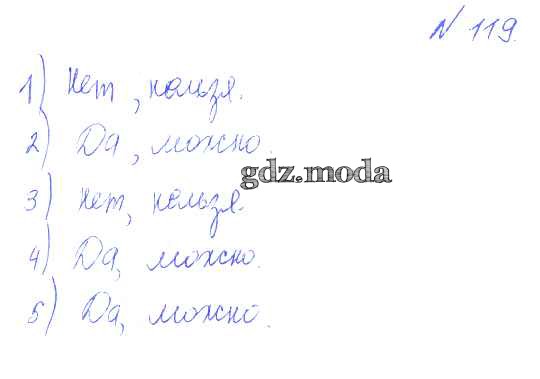 N 119.
1) Нет, нельзя.
2) Да, можно.
gdz.moda
3) Нет, нельзя.
4) Да, можно.
5) Да, можно.